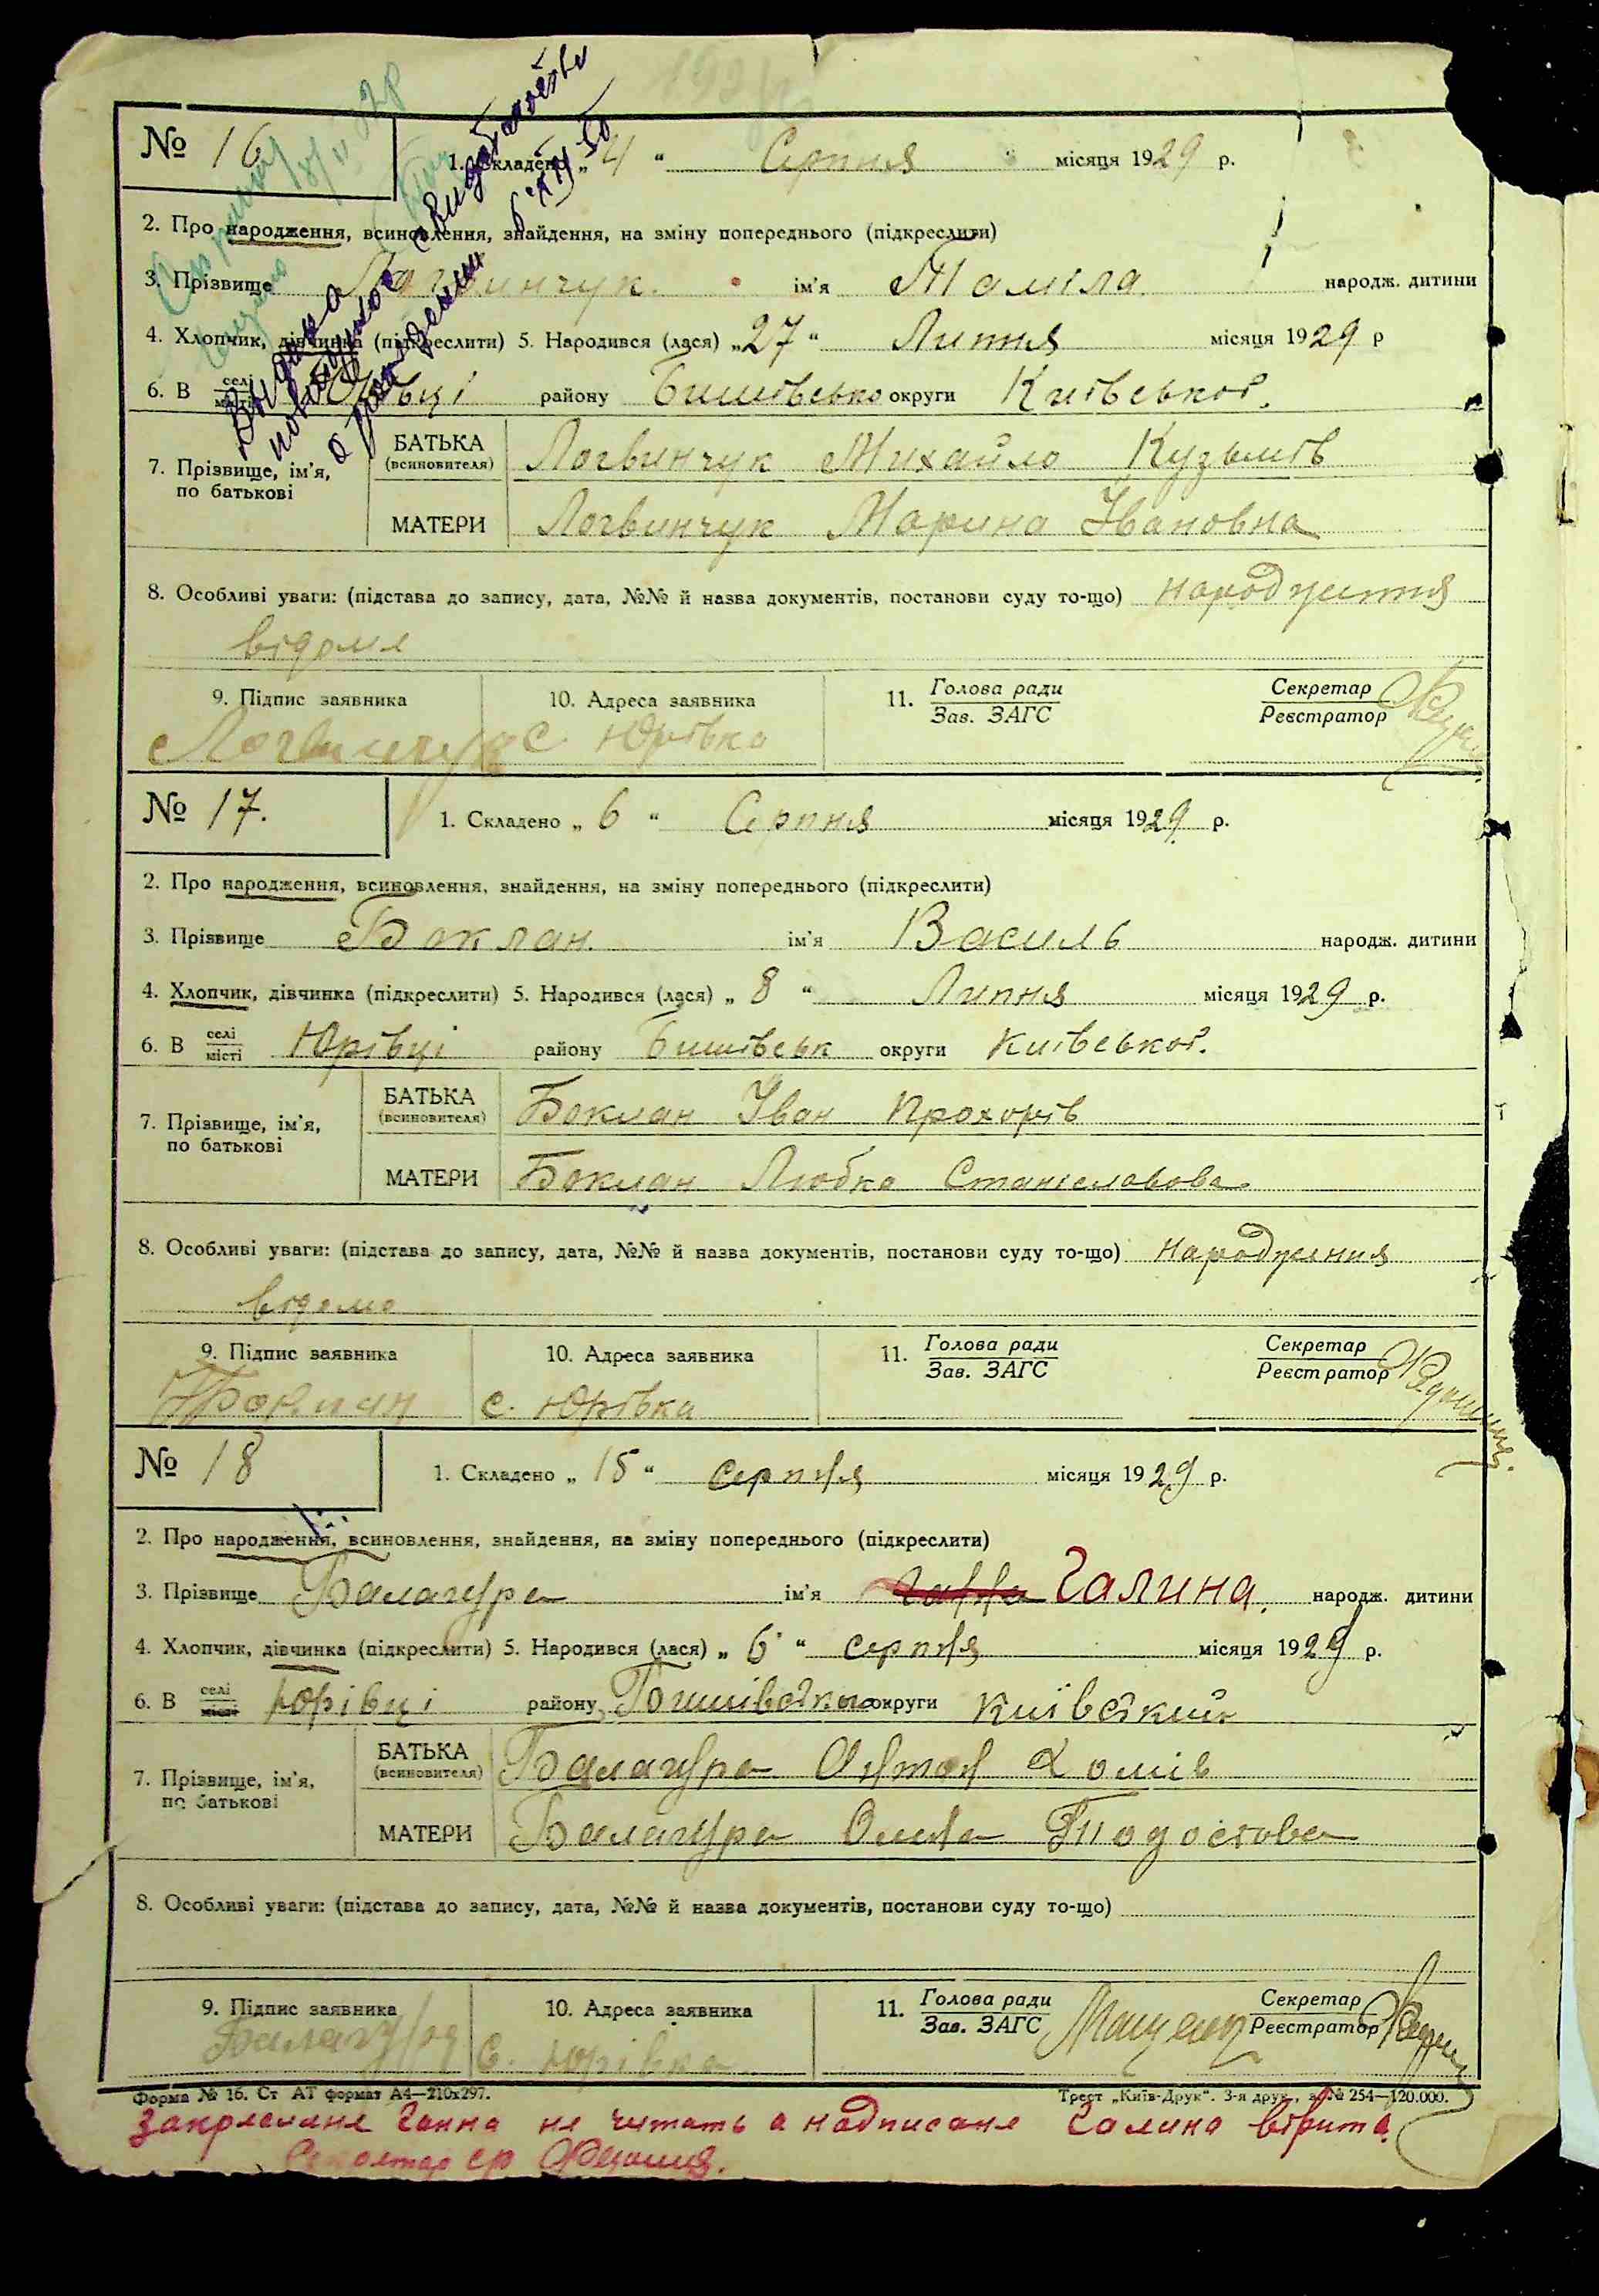 № 16
1. Складено „ 4 “ Серпня місяця 1929 р.
2. Про народження, всиновлення, знайдення, на зміну попереднього (підкреслити)
3. Прізвище Логвинчук ім'я Маміла народж. дитини
4. Хлопчик, дівчинка (підкреслити) 5. Народився (лася) „ 27 “ Липня місяця 1929 р
6. В селі місті Юрівці району Бишівсько округи Київської.
7. Прізвище, ім'я, по батькові
БАТЬКА (всиновителя) Логвинчук Михайло Кузьмів
МАТЕРИ Логвинчук Марина Івановна
8. Особливі уваги: (підстава до запису, дата, №№ й назва документів, постанови суду то-що) народження
відоме
9. Підпис заявника 10. Адреса заявника 11. Голова ради Зав. ЗАГС Секретар Реєстратор
Логвинчук с Юрівка
Выдано повторное свидетельство о рождении
№ 17.
1. Складено „ 6 “ Серпня місяця 1929 р.
2. Про народження, всиновлення, знайдення, на зміну попереднього (підкреслити)
3. Прізвище Боклан. ім'я Василь народж. дитини
4. Хлопчик, дівчинка (підкреслити) 5. Народився (лася) „ 8 “ Липня місяця 1929 р.
6. В селі місті Юрівці району Бишівськ округи Київської.
7. Прізвище, ім'я, по батькові
БАТЬКА (всиновителя) Боклан Іван Прохорів
МАТЕРИ Боклан Любка Станіславова
8. Особливі уваги: (підстава до запису, дата, №№ й назва документів, постанови суду то-що) народження
відомо
9. Підпис заявника 10. Адреса заявника 11. Голова ради Зав. ЗАГС Секретар Реєстратор
Боклан с. Юрівка
№ 18
1. Складено „ 15 “ серпня місяця 1929 р.
2. Про народження, всиновлення, знайдення, на зміну попереднього (підкреслити)
3. Прізвище Балагура ім'я Ганна Галина. народж. дитини
4. Хлопчик, дівчинка (підкреслити) 5. Народився (лася) „ 6 “ серпня місяця 1929 р.
6. В селі місті Юрівці району Бишівського округи Київській
7. Прізвище, ім'я, по батькові
БАТЬКА (всиновителя) Балагура Антон Хомів
МАТЕРИ Балагура Олена
8. Особливі уваги: (підстава до запису, дата, №№ й назва документів, постанови суду то-що)
9. Підпис заявника 10. Адреса заявника 11. Голова ради Зав. ЗАГС Секретар Реєстратор
Балагура С. Юрівка
Форма № 16. Ст АТ формат А4—210х297. Трест „Київ-Друк“. 3-я друк., з. № 254—120.000.
Закреслане Ганна не читать а надписане Галина вірити.
Секретар ср